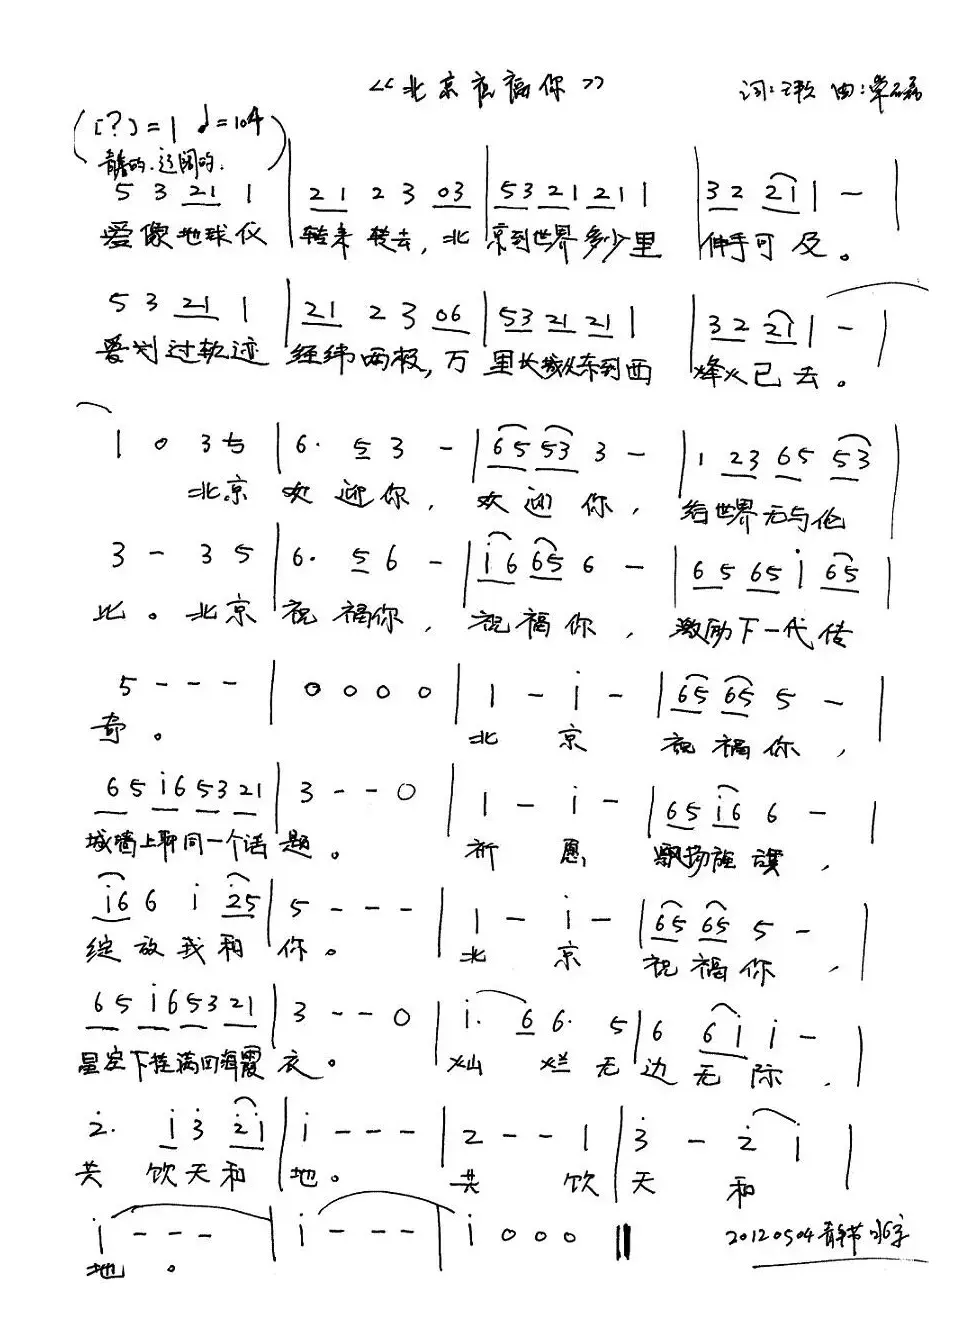 《北京祝福你》 词: 曲:单磊
([?)=1 ♩=104
的.辽阔的.)
5 3 21 1 | 21 2 3 03 | 53 21 21 1 | 32 2i 1 - |
爱像地球仪 转来转去,北京到世界多少里 伸手可及。
5 3 21 1 | 21 2 3 06 | 53 21 21 1 | 32 21 1 - |
爱划过轨迹 经纬两极,万里长城从东到西 烽火已去。
1 0 3 5 | 6· 5 3 - | 65 53 3 - | 1 23 65 53
北京欢迎你, 欢迎你, 给世界无与伦
3 - 3 5 | 6· 5 6 - | i6 65 6 - | 65 65 i 65 |
比。北京祝福你, 祝福你, 激励下一代传
5 - - - | 0 0 0 0 | 1 - i - | 65 65 5 - |
奇。 北京 祝福你,
65 i6 53 21 | 3 - - 0 | 1 - i - | 65 i6 6 - |
城墙上聊同一个话题。 祈愿 飘扬旌旗,
i6 6 i i25 | 5 - - - | 1 - i - | 65 65 5 - |
绽放我和你。 北京 祝福你,
65 i6 53 21 | 3 - - 0 | i· 6 6· 5 | 6 6i i - |
星空下挂满四海霞衣。 灿烂无边无际,
2· i3 2i | i - - - | 2 - - 1 | 3 - 2 i |
共饮天和地。 共饮天和
i - - - | i - - - | i 0 0 0 ‖ 20120504青年节
地。